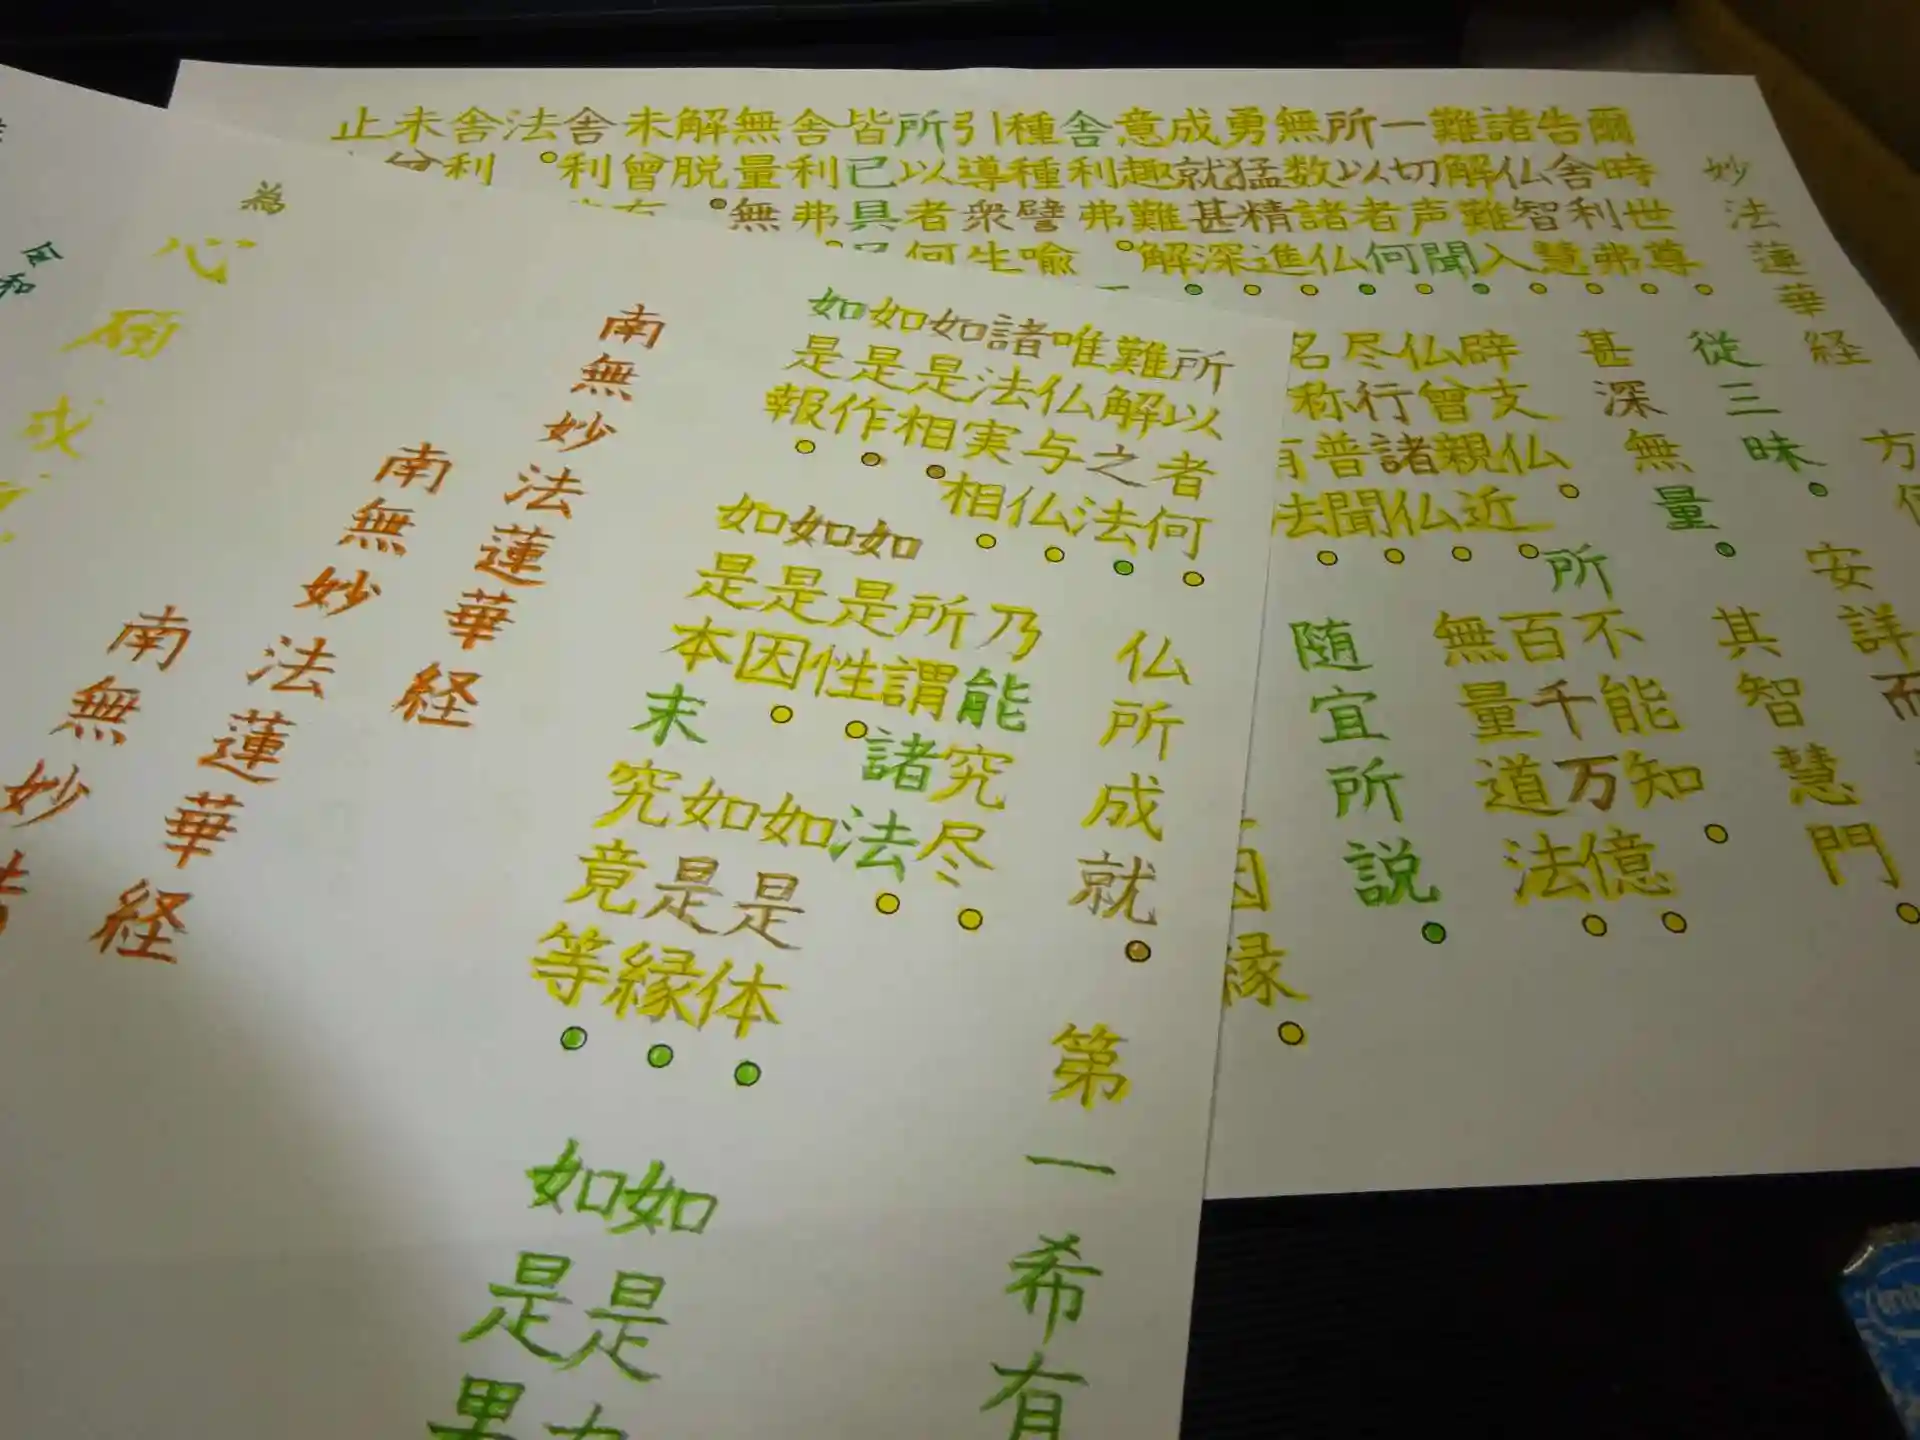 妙法蓮華経
方
爾時世尊
従三昧
安詳而
告舎利弗
諸仏智慧
甚深無量
其智慧門
難解難入
一切声聞
辟支仏
所不能知
所以者何
仏曾親近
百千万億
無数諸仏
尽行諸仏
無量道法
勇猛精進
名称普聞
成就甚深
有法
随宜所説
意趣難解
舎利弗
因縁
種種譬喩
引導衆生
所以者何
皆已具
舎利弗
無量無
解脱
未曾有
舎利
法
舎利
未曾
止
所以者何
仏所成就
第一希有
難解之法
唯仏与仏
乃能究尽
諸法実相
所謂諸法
如是相
如是性
如是体
如是力
如是作
如是因
如是縁
如是果
如是報
如是本末究竟等
南無妙法蓮華経
南無妙法蓮華経
南無妙法
為
心願成